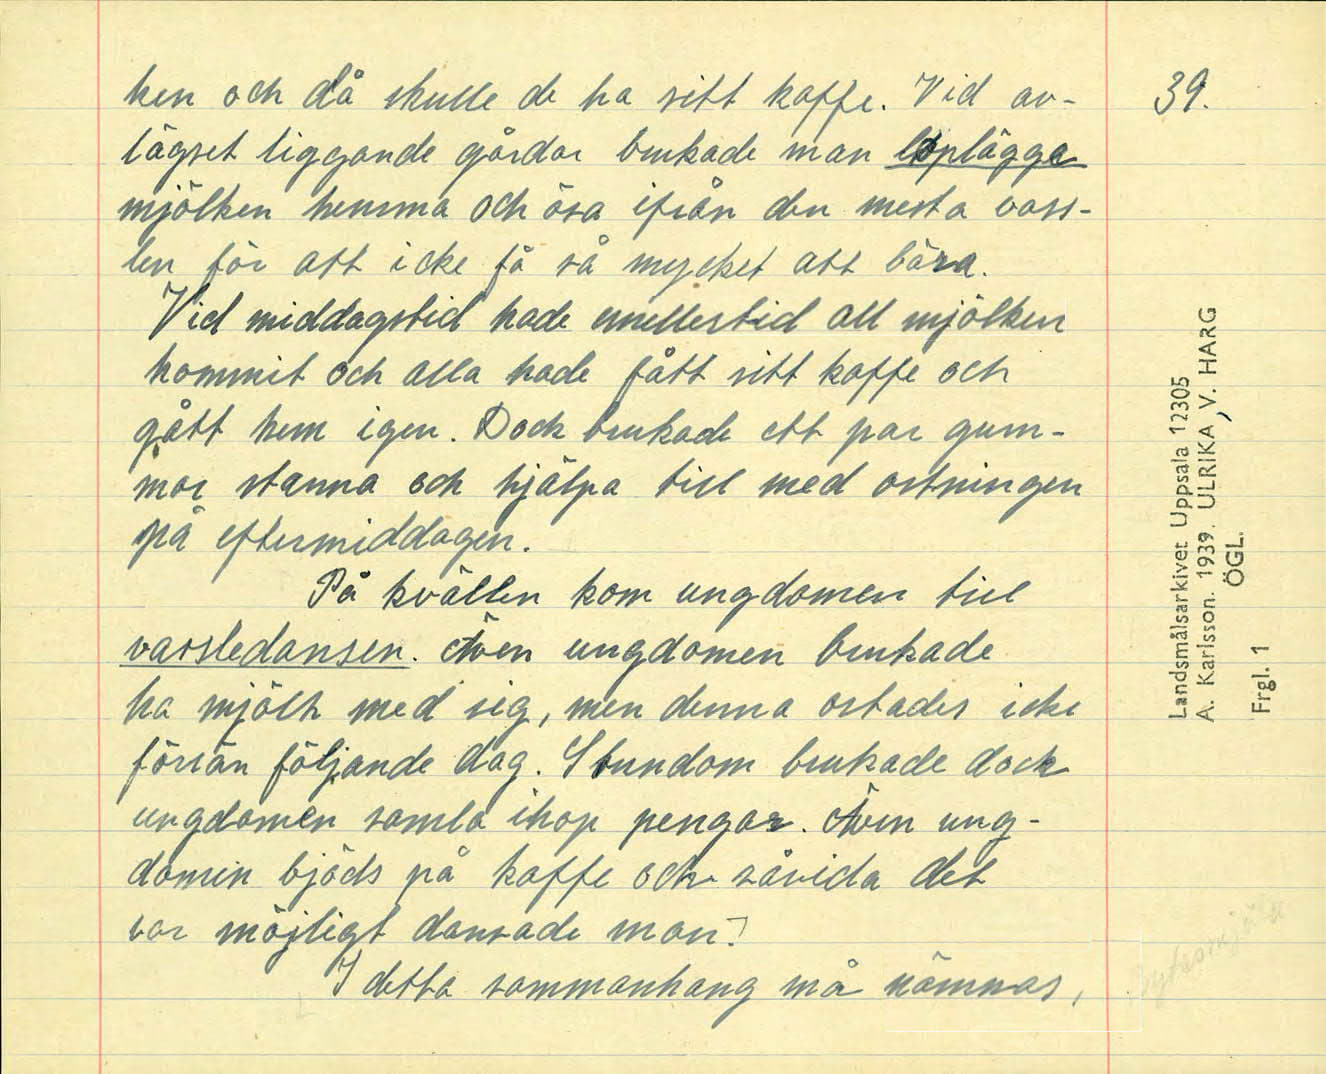 ken och då skulle de ha sitt kaffe. Vid av-
lägset liggande gårdar brukade man löplägga
mjölken hemma och ösa ifrån den mesta vass-
len för att icke få så mycket att bära.
Vid middagstid hade emellertid all mjölken
kommit och alla hade fått sitt kaffe och
gått hem igen. Dock brukade ett par gum-
mor stanna och hjälpa till med ostningen
på eftermiddagen.
På kvällen kom ungdomen till
varsledansen. Även ungdomen brukade
ha mjölk med sig, men denna ostades icke
förrän följande dag. Stundom brukade dock
ungdomen samla ihop pengar. Även ung-
domen bjöds på kaffe och såvida det
var möjligt dansade man.
I detta sammanhang må nämnas,
39.
Landsmålsarkivet Uppsala 12305
A. Karlsson. 1939. ULRIKA, V. HARG
ÖGL.
Frgl. 1